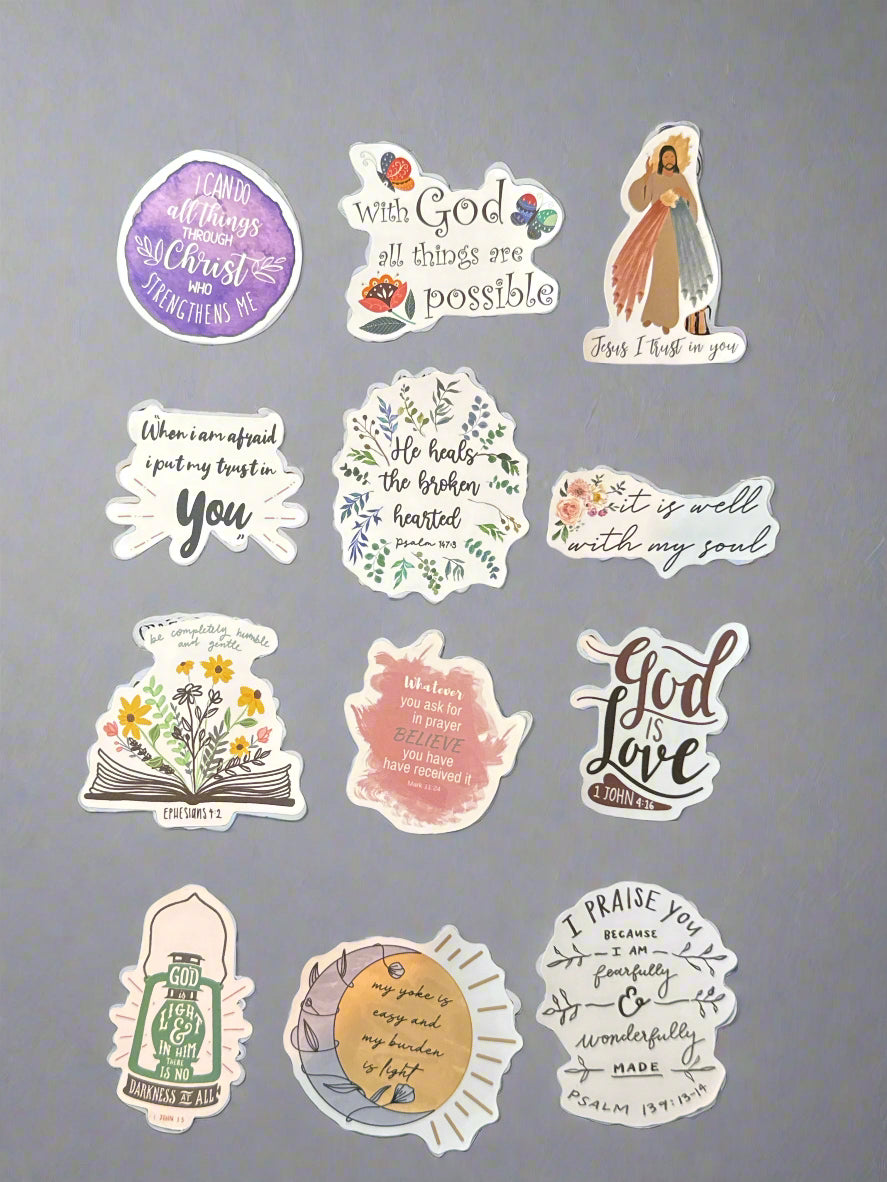 I CAN DO
all things
THROUGH
Christ
WHO
STRENGTHENS ME
With God
all things are
possible
Jesus I trust in you
"When i am afraid
i put my trust in
You"
He heals
the broken
hearted
Psalm 147:3
it is well
with my soul
be completely humble
and gentle
EPHESIANS 4:2
Whatever
you ask for
in prayer
BELIEVE
you have
have received it
Mark 11:24
God
IS
Love
1 JOHN 4:16
GOD
IS
LIGHT
&
IN HIM
THERE
IS NO
DARKNESS AT ALL
1 JOHN 1:5
my yoke is
easy and
my burden
is light
I PRAISE YOU
BECAUSE
I AM
fearfully
&
wonderfully
MADE
PSALM 139:13-14